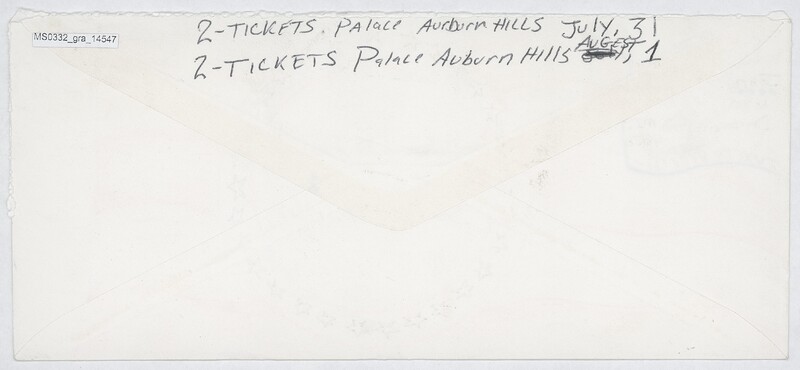 MS0332_gra_14547
2-TICKETS. PALACE AURBURN HILLS July, 31
AUGEST
2-TICKETS Palace Auburn Hills , 1